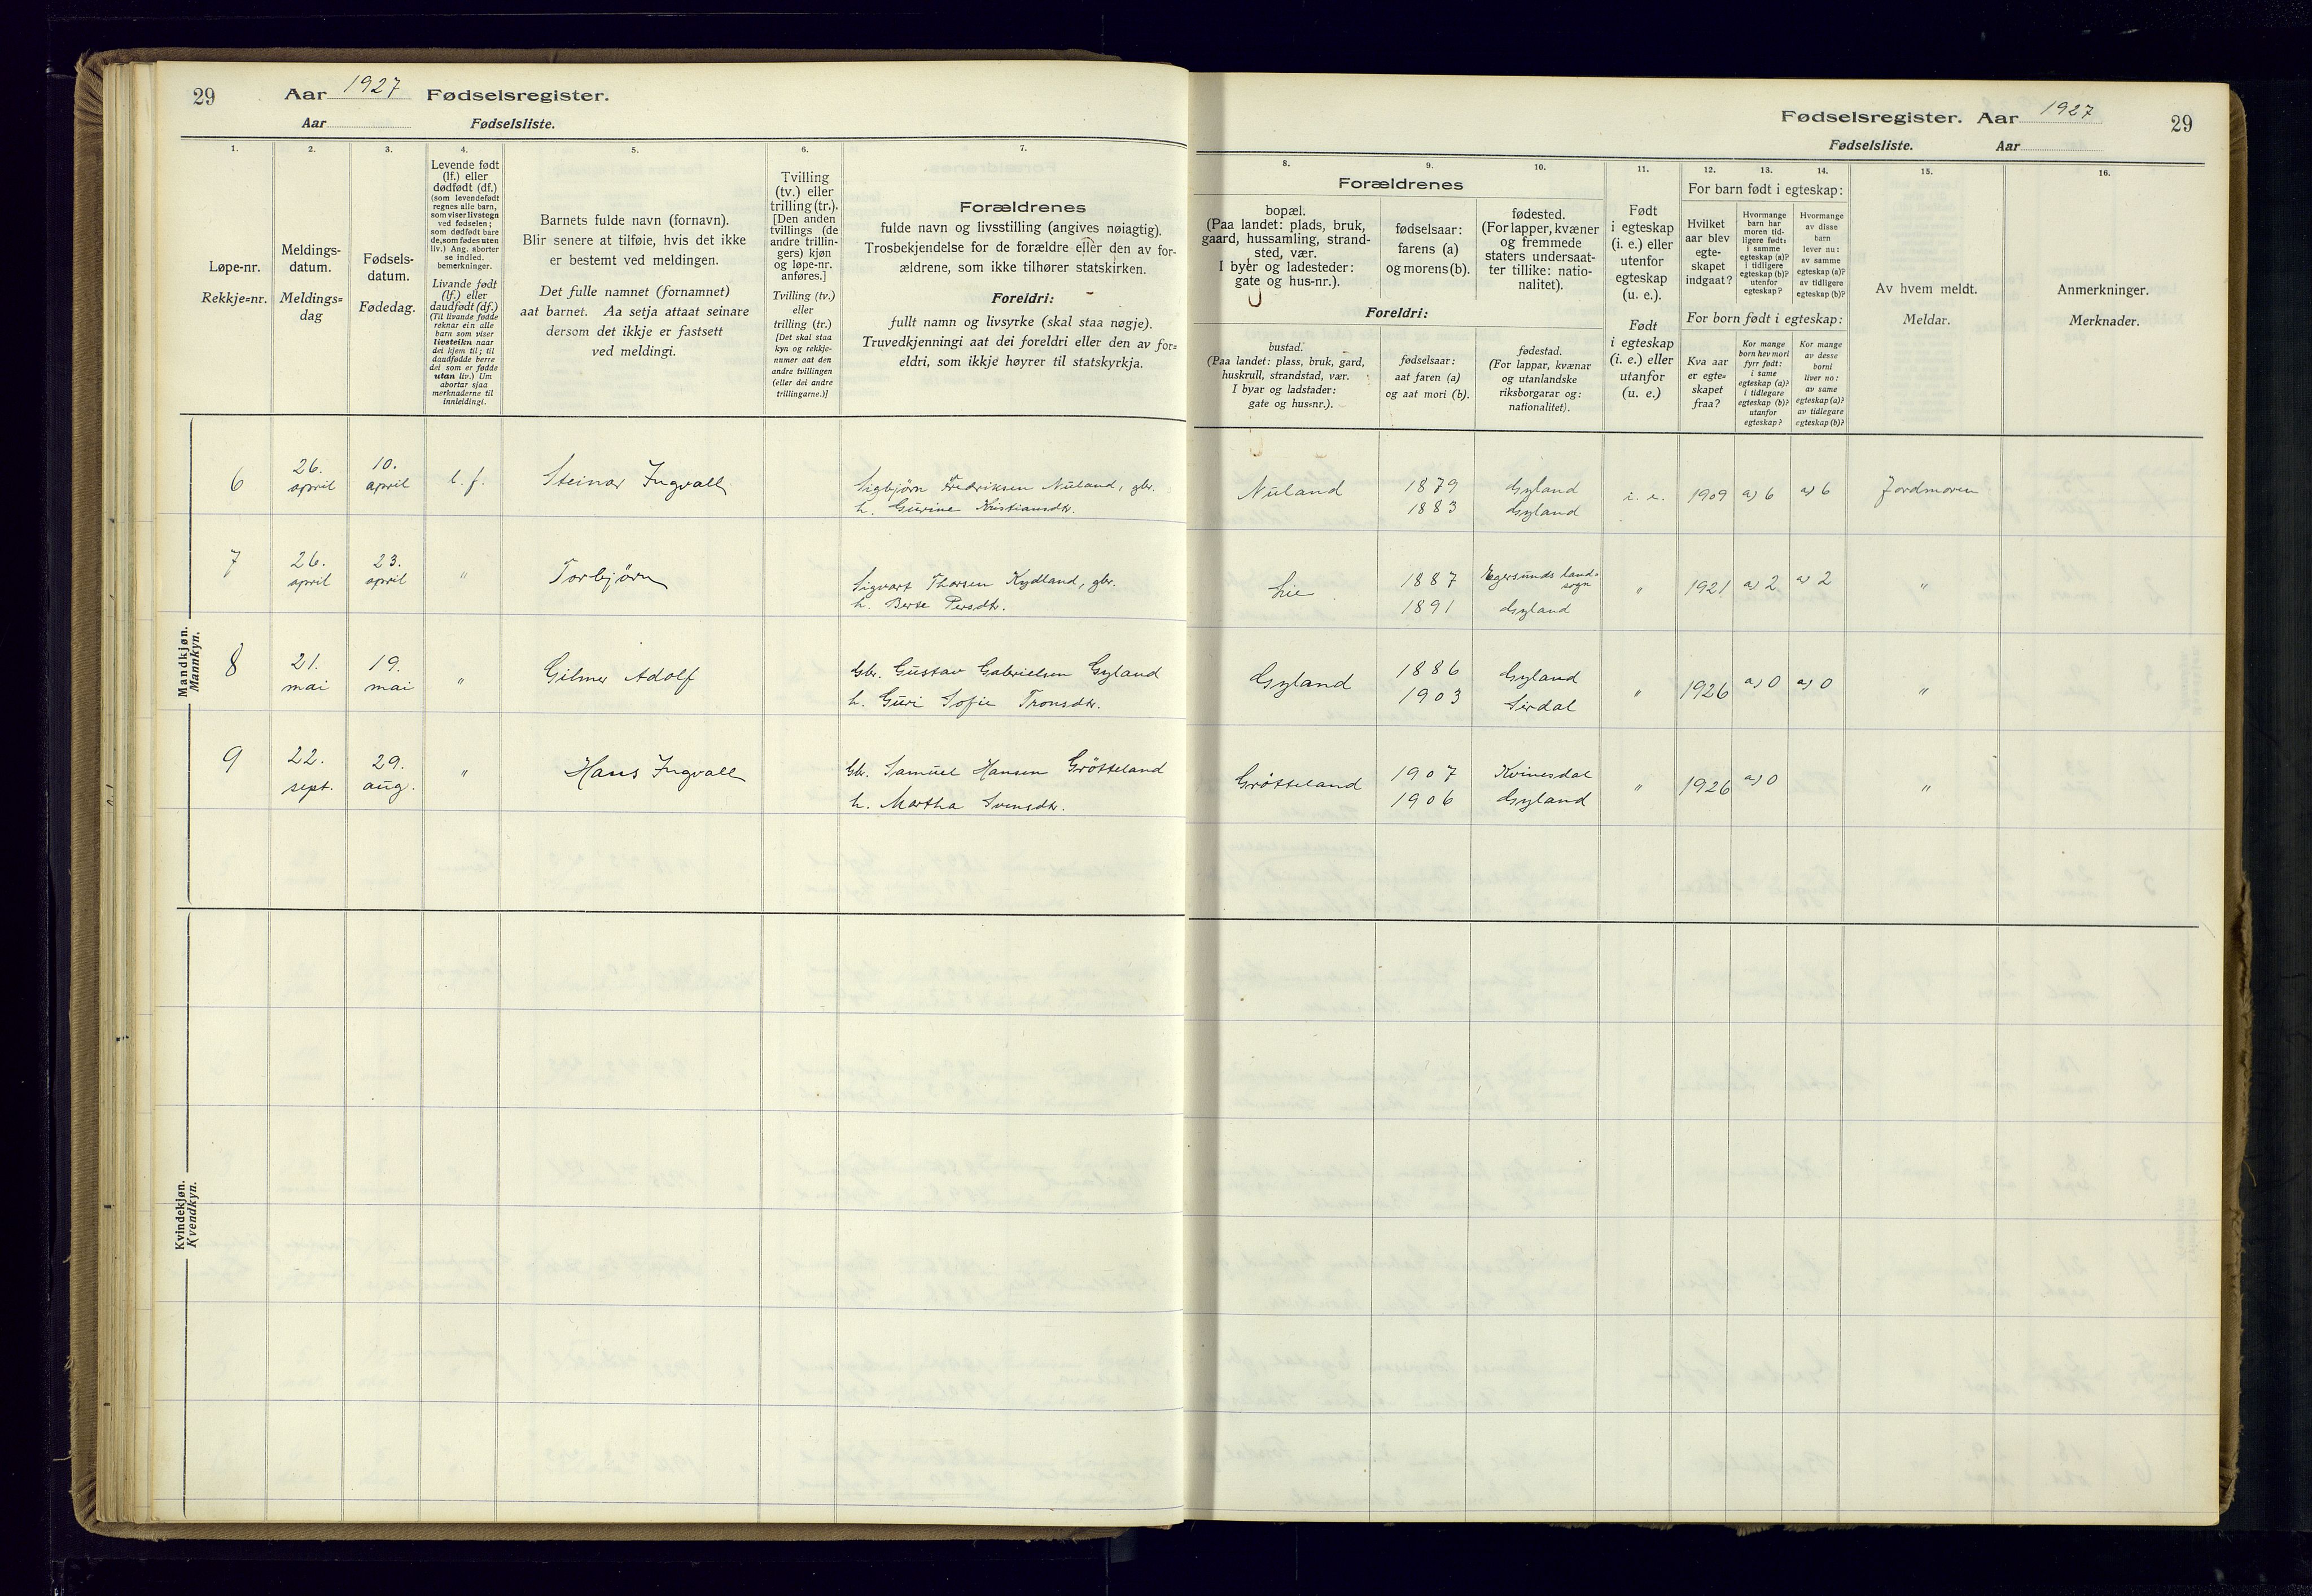 29
Aar 1927 Fødselsregister.
Aar Fødselsliste.
Fødselsregister. Aar 1927
29
Fødselsliste. Aar
1. 2. 3. 4. 5. 6. 7.
Løpe-nr.
Rekkje=nr.
Meldings-
datum.
Meldings=
dag
Fødsels-
datum.
Fødedag.
Levende født
(lf.) eller
dødfødt (df.)
(som levendefødt
regnes alle barn,
som viser livstegn
ved fødselen;
som dødfødt bare
de, som fødes uten
liv.) Ang. aborter
se indled.
bemerkninger.
Livande født
(lf.) eller
daudfødt (df.)
(Til livande fødde
reknar ein alle
barn som viser
livsteikn naar
dei kjem til; til
daudfødde berre
dei som er fødde
utan liv.) Um
abortar sjaa
merknaderne til
innleidingi.
Barnets fulde navn (fornavn).
Blir senere at tilføie, hvis det ikke
er bestemt ved meldingen.
Det fulle namnet (fornamnet)
aat barnet. Aa setja attaat seinare
dersom det ikkje er fastsett
ved meldingi.
Tvilling
(tv.) eller
trilling (tr.).
[Den anden
tvillings (de
andre trillin-
gers) kjøn
og løpe-nr.
anføres.]
Tvilling (tv.)
eller
trilling (tr.)
[Det skal staa
kyn og rekkje-
numer aat den
andre tvillingen
(eller dei andre
trillingarne.)]
Forældrenes
fulde navn og livsstilling (angives nøiagtig).
Trosbekjendelse for de forældre eller den av for-
ældrene, som ikke tilhører statskirken.
Foreldri:
fullt namn og livsyrke (skal staa nøgje).
Truvedkjenningi aat dei foreldri eller den av for=
eldri, som ikkje høyrer til statskyrkja.
8. 9. 10. 11. 12. 13. 14. 15. 16.
Forældrenes
bopæl.
(Paa landet: plads, bruk,
gaard, hussamling, strand-
sted, vær.
I byer og ladesteder:
gate og hus-nr.).
fødselsaar:
farens (a)
og morens (b).
fødested.
(For lapper, kvæner
og fremmede
staters undersaat-
ter tillike: natio-
nalitet).
Foreldri:
bustad.
(Paa landet: plass, bruk, gard,
huskrull, strandstad, vær.
I byar og ladstader:
gate og hus=nr.).
fødselsaar:
aat faren (a)
og aat mori (b).
fødestad.
(For lappar, kvænar
og utanlandske
riksborgarar og:
nationalitet).
Født
i egteskap
(i. e.) eller
utenfor
egteskap
(u. e.).
Født
i egteskap
(i. e.) eller
utanfor
(u. e.)
For barn født i egteskap:
Hvilket
aar blev
egte-
skapet
indgaat?
Hvormange
barn har
moren tid-
ligere født:
i samme
egteskap (a)?
i tidligere
egteskap (b)?
utenfor
egteskap?
Hvormange
av disse
barn
lever nu:
av samme
egteskap (a)?
av tidligere
egteskap (b)?
For born født i egteskap:
Kva aar
er egte=
skapet
fraa?
Kor mange
born hev mori
fyrr født:
i same
egteskap (a)?
i tidlegare
egteskap (b)?
utanfor
egteskap?
Kor mange
av desse
borni
liver no:
av same
egteskap (a)?
av tidlegare
egteskap (b)?
Av hvem meldt.
Meldar.
Anmerkninger.
Merknader.
Mandkjøn.
Mannkyn.
6 26. april 10. april l. f. Steinar Ingvall Sigbjørn Fredriksen Nuland, gbr. Nuland 1879 Gyland i. e. 1909 a) 6 a) 6 Jordmoren
h. Gurine Kristiansdtr. 1883 Gyland
7 26. april 23. april " Torbjørn Sigvart Thorsen Kydland, gbr. Lie 1887 Egersunds landsogn " 1921 a) 2 a) 2 "
h. Berte Persdtr. 1891 Gyland
8 21. mai 19. mai " Gilmer Adolf Gbr. Gustav Gabrielsen Gyland Gyland 1886 Gyland " 1926 a) 0 a) 0 "
h. Guri Sofie Tronsdtr. 1903 Sirdal
9 22. sept. 29. aug. " Hans Ingvall Gbr. Samuel Hansen Grøtteland Grøtteland 1907 Kvinesdal " 1926 a) 0 "
h. Martha Svensdtr. 1906 Gyland
Kvindekjøn.
Kvendkyn.